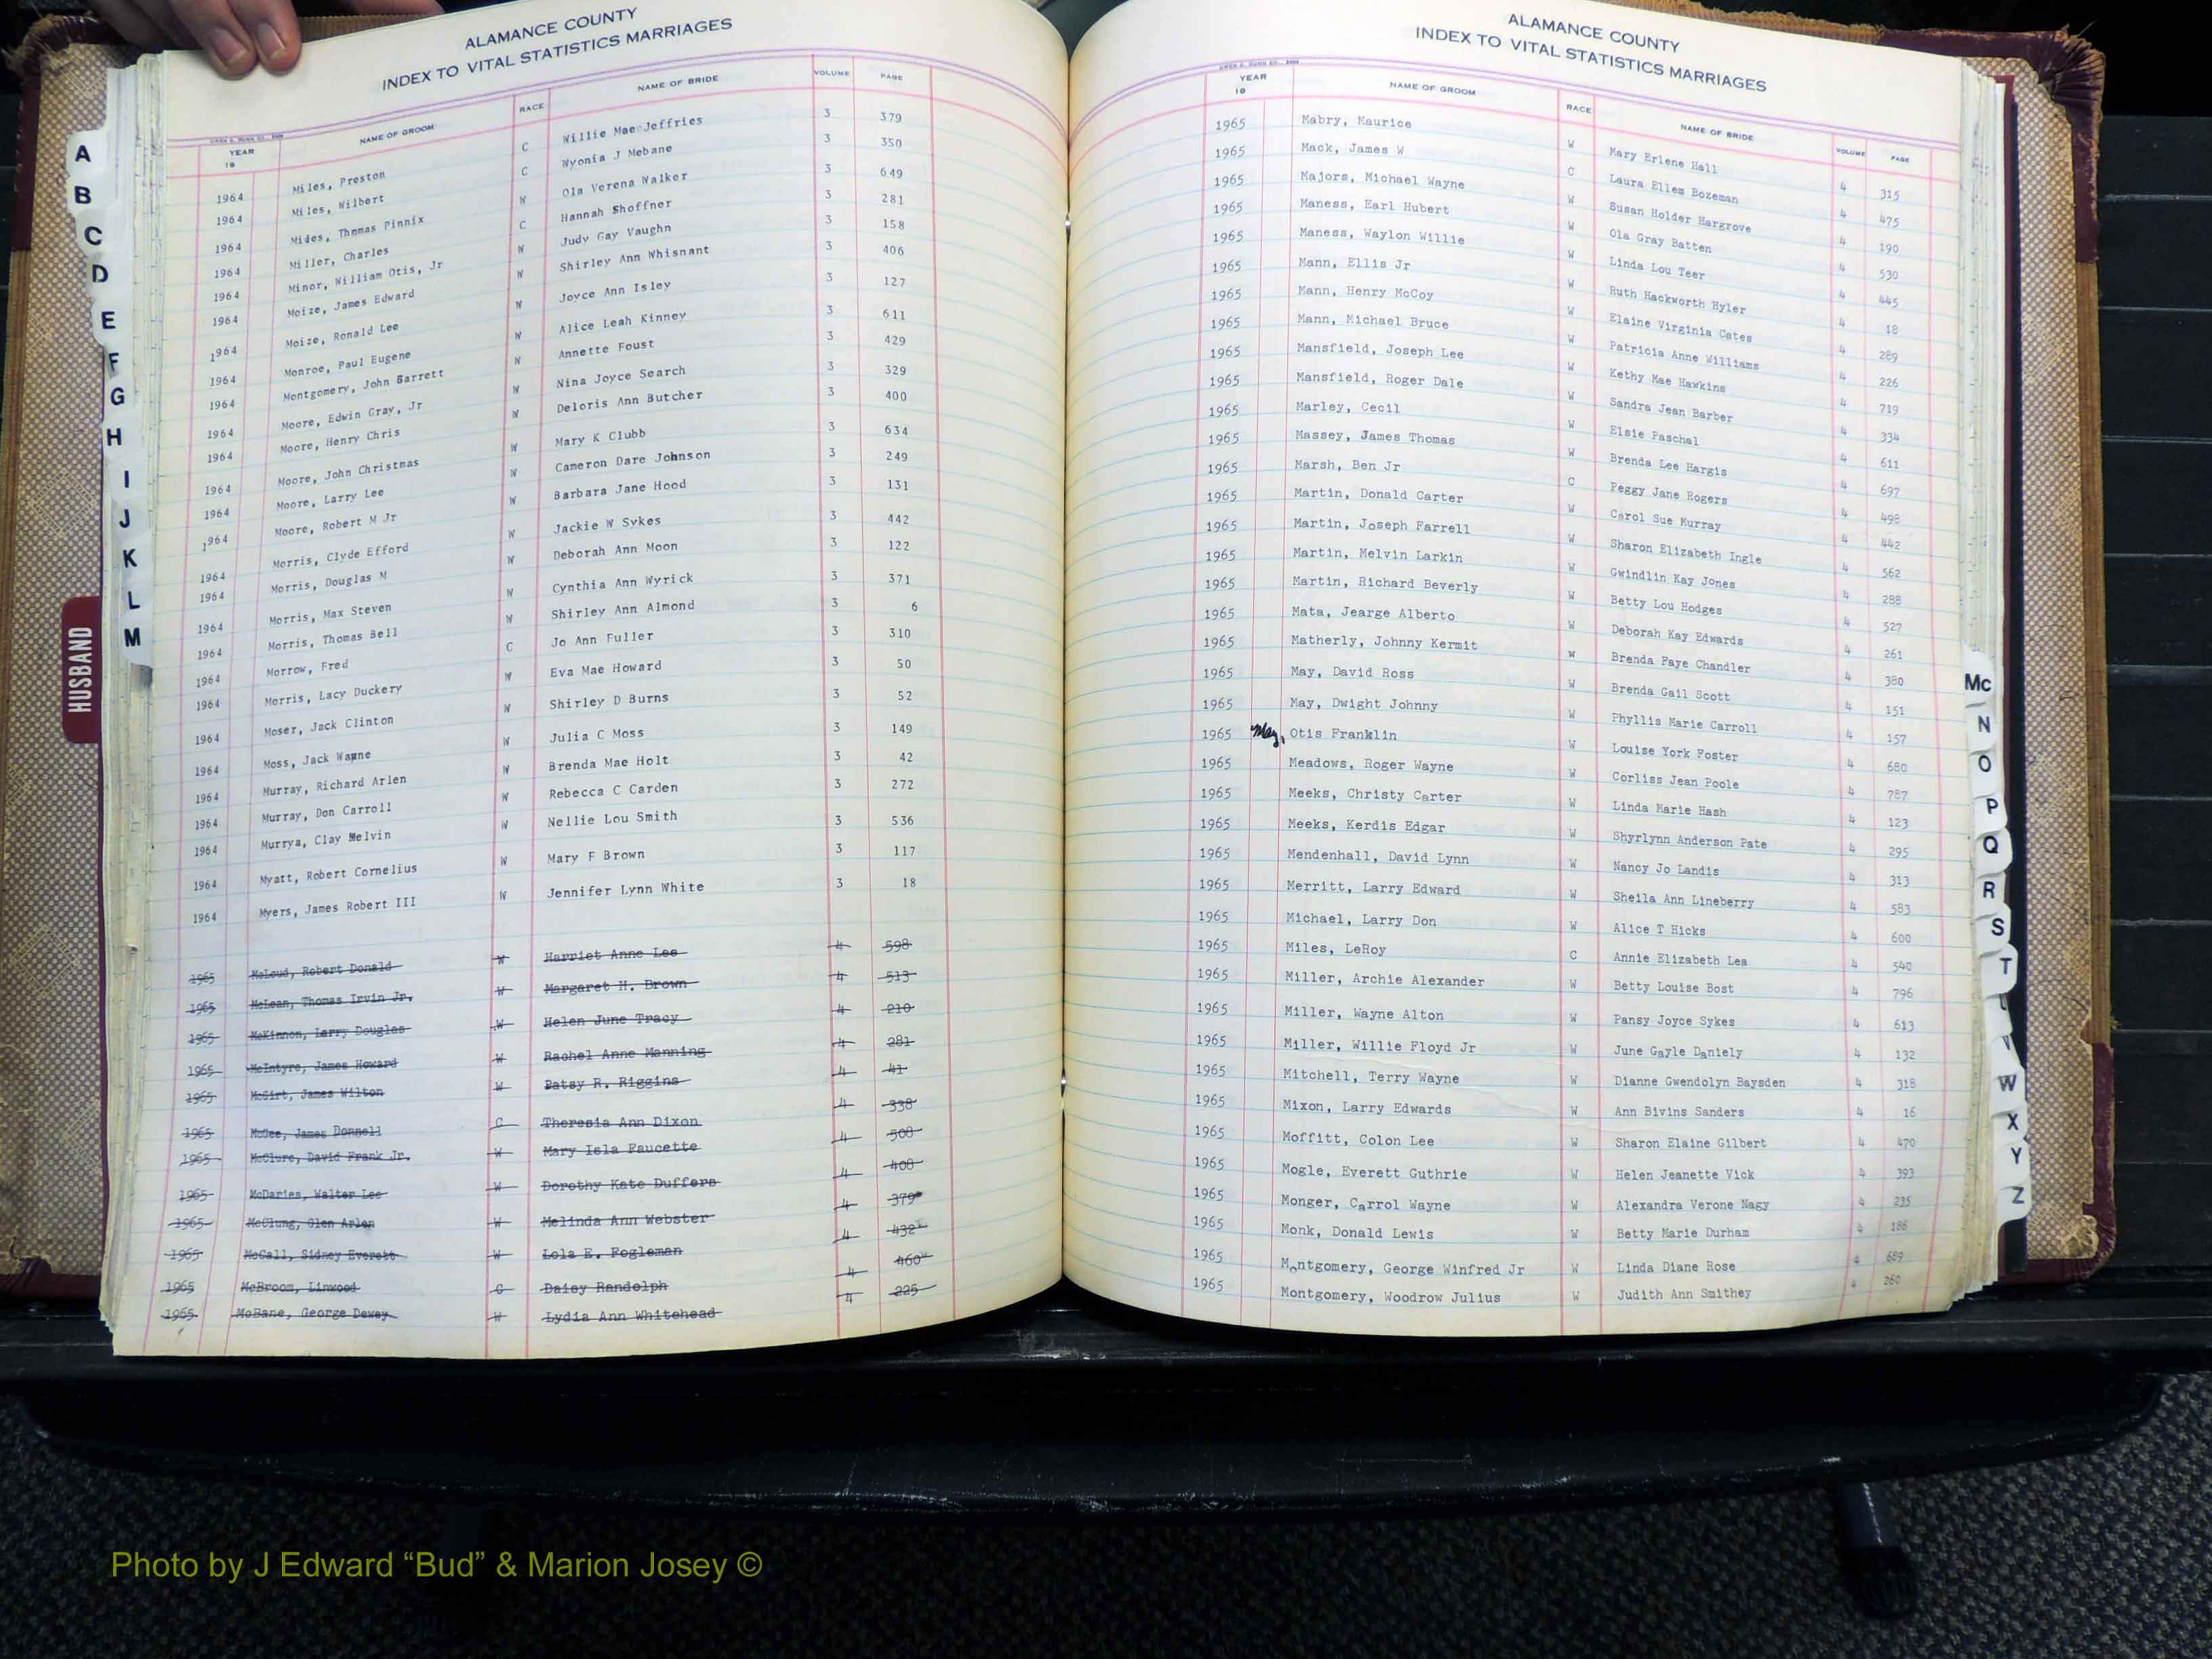 ALAMANCE COUNTY
INDEX TO VITAL STATISTICS MARRIAGES
YEAR 19 NAME OF GROOM RACE NAME OF BRIDE VOLUME PAGE
1964 Miles, Preston C Willie Mae Jeffries 3 379
1964 Miles, Wilbert C Wyonia J Mebane 3 350
1964 Mides, Thomas Pinnix W Ola Verena Walker 3 649
1964 Miller, Charles C Hannah Shoffner 3 281
1964 Minor, William Otis, Jr W Judy Gay Vaughn 3 158
1964 Moize, James Edward W Shirley Ann Whisnant 3 406
1964 Moize, Ronald Lee W Joyce Ann Isley 3 127
1964 Monroe, Paul Eugene W Alice Leah Kinney 3 611
1964 Montgomery, John Barrett W Annette Foust 3 429
1964 Moore, Edwin Gray, Jr W Nina Joyce Search 3 329
1964 Moore, Henry Chris W Deloris Ann Butcher 3 400
1964 Moore, John Christmas W Mary K Clubb 3 634
1964 Moore, Larry Lee W Cameron Dare Johnson 3 249
1964 Moore, Robert M Jr W Barbara Jane Hood 3 131
1964 Morris, Clyde Efford W Jackie W Sykes 3 442
1964 Morris, Douglas M W Deborah Ann Moon 3 122
1964 Morris, Max Steven W Cynthia Ann Wyrick 3 371
1964 Morris, Thomas Bell W Shirley Ann Almond 3 6
1964 Morrow, Fred C Jo Ann Fuller 3 310
1964 Morris, Lacy Duckery W Eva Mae Howard 3 50
1964 Moser, Jack Clinton W Shirley D Burns 3 52
1964 Moss, Jack Wayne W Julia C Moss 3 149
1964 Murray, Richard Arlen W Brenda Mae Holt 3 42
1964 Murray, Don Carroll W Rebecca C Carden 3 272
1964 Murrya, Clay Melvin W Nellie Lou Smith 3 536
1964 Myatt, Robert Cornelius W Mary F Brown 3 117
1964 Myers, James Robert III W Jennifer Lynn White 3 18
1965 McLoud, Robert Donald W Harriet Anne Lee 4 598
1965 McLean, Thomas Irvin Jr. W Margaret H. Brown 4 513
1965 McKinnon, Larry Douglas W Helen June Tracy 4 210
1965 McIntyre, James Howard W Rachel Anne Manning 4 281
1965 McGirt, James Wilton W Patsy R. Riggins 4 41
1965 McGee, James Donnell C Theresia Ann Dixon 4 338
1965 McClure, David Frank Jr. W Mary Isla Faucette 4 508
1965 McDaries, Walter Lee W Dorothy Kate Duffers 4 408
1965 McClung, Glen Arlen W Melinda Ann Webster 4 379
1965 McCall, Sidney Everett W Lola E. Fogleman 4 432
1965 McBroom, Linwood C Daisy Randolph 4 460
1965 McBane, George Dewey W Lydia Ann Whitehead 4 225
ALAMANCE COUNTY
INDEX TO VITAL STATISTICS MARRIAGES
YEAR 19 NAME OF GROOM RACE NAME OF BRIDE VOLUME PAGE
1965 Mabry, Maurice W Mary Erlene Hall 4 315
1965 Mack, James W C Laura Ellem Bozeman 4 475
1965 Majors, Michael Wayne W Susan Holder Hargrove 4 190
1965 Maness, Earl Hubert W Ola Gray Batten 4 530
1965 Maness, Waylon Willie W Linda Lou Teer 4 445
1965 Mann, Ellis Jr W Ruth Hackworth Hyler 4 18
1965 Mann, Henry McCoy W Elaine Virginia Cates 4 289
1965 Mann, Michael Bruce W Patricia Anne Williams 4 226
1965 Mansfield, Joseph Lee W Kethy Mae Hawkins 4 719
1965 Mansfield, Roger Dale W Sandra Jean Barber 4 334
1965 Marley, Cecil W Elsie Paschal 4 611
1965 Massey, James Thomas W Brenda Lee Hargis 4 697
1965 Marsh, Ben Jr C Peggy Jane Rogers 4 498
1965 Martin, Donald Carter W Carol Sue Murray 4 442
1965 Martin, Joseph Farrell W Sharon Elizabeth Ingle 4 562
1965 Martin, Melvin Larkin W Gwindlin Kay Jones 4 288
1965 Martin, Richard Beverly W Betty Lou Hodges 4 527
1965 Mata, Jearge Alberto W Deborah Kay Edwards 4 261
1965 Matherly, Johnny Kermit W Brenda Faye Chandler 4 380
1965 May, David Ross W Brenda Gail Scott 4 151
1965 May, Dwight Johnny W Phyllis Marie Carroll 4 157
1965 May, Otis Franklin W Louise York Foster 4 680
1965 Meadows, Roger Wayne W Corliss Jean Poole 4 787
1965 Meeks, Christy Carter W Linda Marie Hash 4 123
1965 Meeks, Kerdis Edgar W Shyrlynn Anderson Pate 4 295
1965 Mendenhall, David Lynn W Nancy Jo Landis 4 313
1965 Merritt, Larry Edward W Sheila Ann Lineberry 4 583
1965 Michael, Larry Don W Alice T Hicks 4 600
1965 Miles, LeRoy C Annie Elizabeth Lea 4 540
1965 Miller, Archie Alexander W Betty Louise Bost 4 796
1965 Miller, Wayne Alton W Pansy Joyce Sykes 4 613
1965 Miller, Willie Floyd Jr W June Gayle Daniely 4 132
1965 Mitchell, Terry Wayne W Dianne Gwendolyn Baysden 4 318
1965 Mixon, Larry Edwards W Ann Bivins Sanders 4 16
1965 Moffitt, Colon Lee W Sharon Elaine Gilbert 4 470
1965 Mogle, Everett Guthrie W Helen Jeanette Vick 4 393
1965 Monger, Carrol Wayne W Alexandra Verone Nagy 4 235
1965 Monk, Donald Lewis W Betty Marie Durham 4 186
1965 Montgomery, George Winfred Jr W Linda Diane Rose 4 689
1965 Montgomery, Woodrow Julius W Judith Ann Smithey 4 260
A
B
C
D
E
F
G
H
I
J
K
L
M
HUSBAND
Mc
N
O
P
Q
R
S
T
V
W
X
Y
Z
Photo by J Edward “Bud” & Marion Josey ©